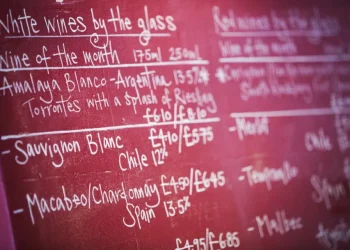 White wines by the glass
Wine of the month 175ml 250ml
Amalaya Blanco - Argentina 13.5%
Torrontés with a splash of Riesling
£6.10/£8.10
- Sauvignon Blanc £4.10/£5.75
Chile 12%
- Macabeo/Chardonnay £4.90/£6.45
Spain 13.5%
£4.95/6.85
Red wines by the glass
Wine of the month
- Merlot
Chile
- Tempranillo
Spain
- Malbec